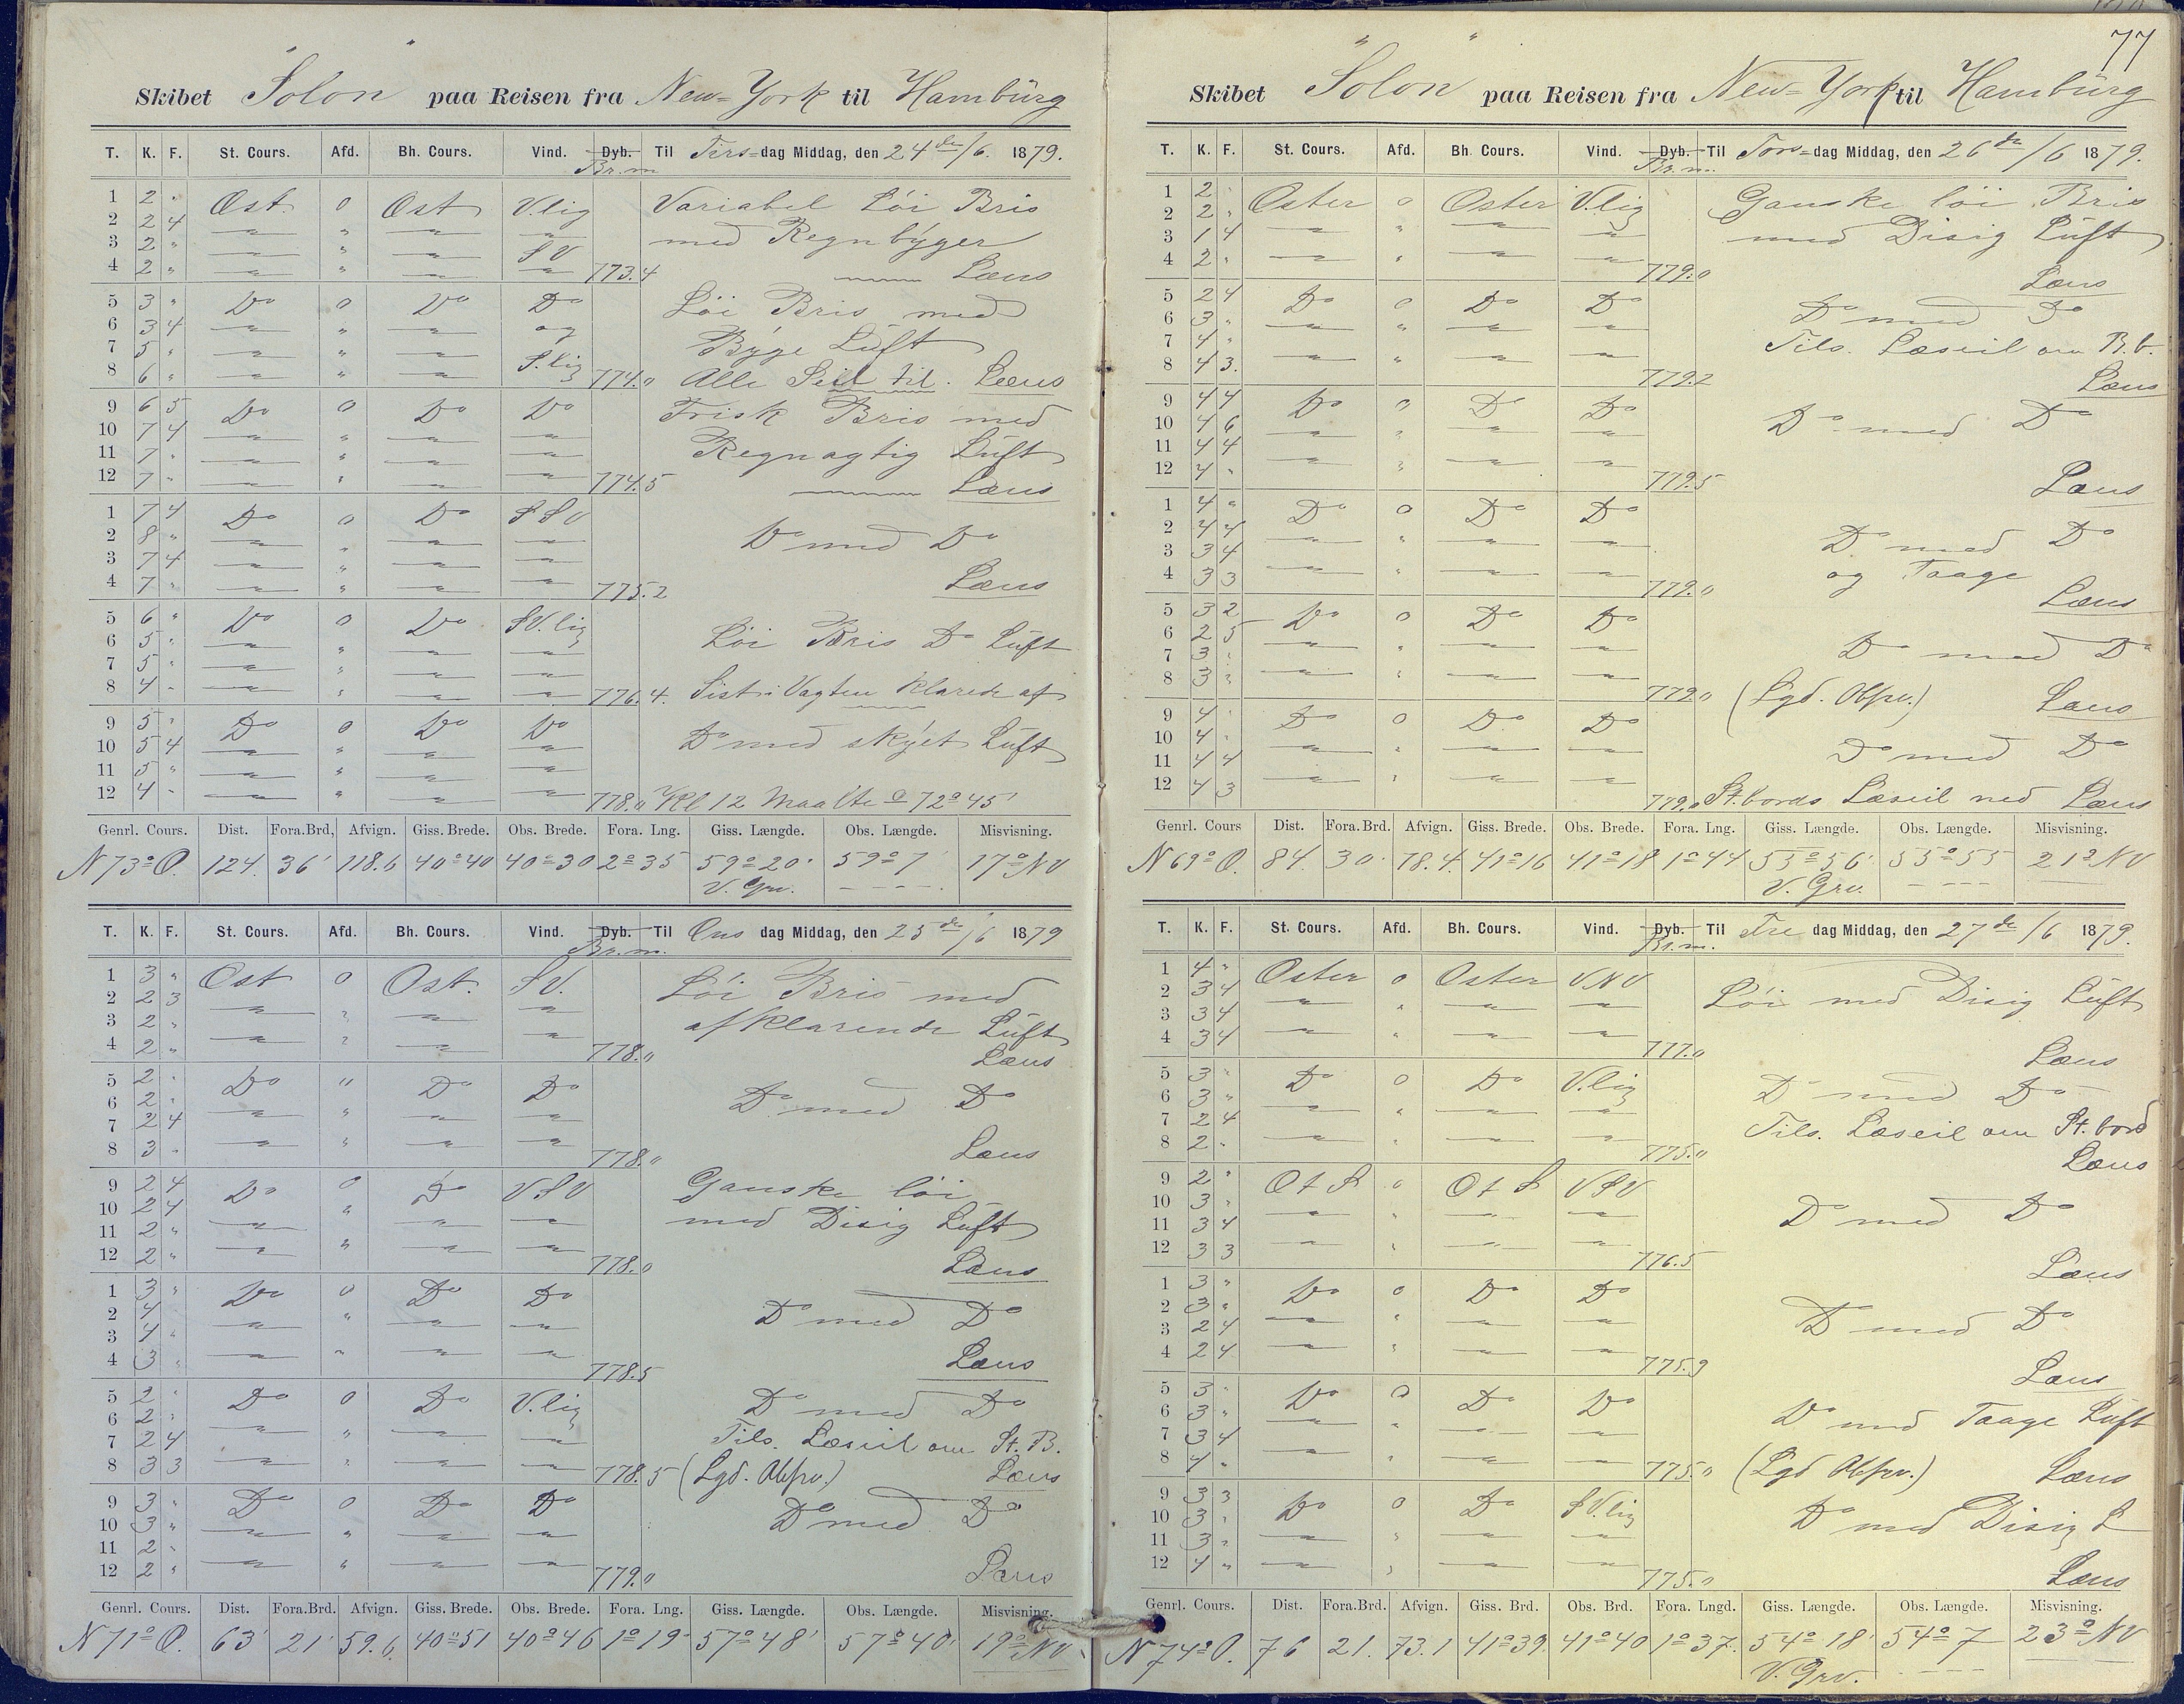 Skibet "Solon" paa Reisen fra New-York til Hamburg
T. K. F. St. Cours. Afd. Bh. Cours. Vind. Dyb. Til Tirs-dag Middag, den 24de/6. 1879.
Br.m
1 2 " Ost. 0 Ost V.lig Variabel Löi Bris
2 2 4 " " " " med Regnbyger
3 2 " " " " SV
4 2 " " " " " 773.4 Læns
5 3 " Do 0 Do Do Löi Bris med
6 3 4 " " " og Byge Luft
7 5 " " " " S.lig
8 6 " " " " 774.0 Alle Seil til. Læns
9 6 5 Do 0 Do Do Frisk Bris med
10 7 4 " " " " Regnagtig Luft
11 7 " " " " "
12 7 " " " " " 774.5 Læns
1 7 4 Do 0 Do SSV
2 8 " " " " " Do med Do
3 7 4 " " " "
4 7 " " " " " 775.2 Læns
5 6 " Do 0 Do SV.lig
6 5 " " " " " Löi Bris Do Luft
7 5 " " " " "
8 4 " " " " " 776.4. Sist i Vagten klarede af
9 5 " Do 0 Do Do
10 5 4 " " " " Do med skyet Luft
11 5 " " " " "
12 4 " " " " " 778.0 Kl 12 Maalte 72° 45'
Genrl. Cours. Dist. Fora.Brd, Afvign. Giss. Brede. Obs. Brede. Fora. Lng. Giss. Længde. Obs. Længde. Misvisning.
N 73° O. 124. 36' 118.6 40°40 40°30 2°35 59°20' 59°7' 17° NV
V. Grv.
T. K. F. St. Cours. Afd. Bh. Cours. Vind. Dyb. Til Ons dag Middag, den 25de/6 1879
Br.m.
1 3 " Ost 0 Ost. SV. Löi Bris med
2 2 3 " " " " afklarende Luft
3 2 " " " " "
4 2 " " " " " 778.0 Læns
5 2 " Do " Do Do
6 2 " " " " " Do med Do
7 2 4 " " " "
8 3 " " " " " 778.0 Læns
9 2 4 Do 0 Do VSV Ganske löi
10 2 4 " " " " med Disig Luft
11 2 " " " " "
12 2 " " " " " 778.0 Læns
1 3 " Do 0 Do Do
2 4 " " " " " Do med Do
3 4 " " " " "
4 3 " " " " " 778.5 Læns
5 2 " Do 0 Do V.lig Do med Do
6 2 " " " " "
7 2 4 " " " " Tils. Læseil om St. B.
8 3 3 " " " " 778.5 (Lgd. Obsrv.) Læns
9 3 " Do 0 Do Do
10 3 " " " " " Do med Do
11 2 " " " " "
12 2 " " " " " 779.0 Læns
Genrl. Cours. Dist. Fora.Brd. Afvign. Giss. Brede. Obs. Brede. Fora. Lng. Giss. Længde. Obs. Længde. Misvisning.
N 71° O. 63' 21' 59.6. 40°51 40°46 1°19' 57°48' 57°40' 19° NV
77
Skibet "Solon" paa Reisen fra New-York til Hamburg
T. K. F. St. Cours. Afd. Bh. Cours. Vind. Dyb. Til Tors-dag Middag, den 26de/6 1879.
Br.m.
1 2 " Oster 0 Oster V.lig Ganske löi Bris
2 2 " " " " " med Disig Luft
3 1 4 " " " "
4 2 " " " " " 779.0 Læns
5 2 4 Do 0 Do Do Do med Do
6 3 " " " " "
7 4 " " " " " Tils. Læseil om B.b.
8 4 3. " " " " 779.2 Læns
9 4 4 Do 0 Do Do
10 4 6 " " " " Do med Do
11 4 4 " " " "
12 4 " " " " " 779.5 Læns
1 4 " Do 0 Do Do
2 4 4 " " " " Do med Do
3 3 4 " " " " og Taage
4 3 3 " " " " 779.0 Læns
5 3 2 Do 0 Do Do
6 2 5 " " " " Do med Do
7 3 " " " " "
8 3 " " " " " 779.0 (Lgd. Obsrv.) Læns
9 4 " Do 0 Do Do
10 4 " " " " " Do med Do
11 4 4 " " " "
12 4 3 " " " " 779.0 St.bords Læseil ned Læns
Genrl. Cours Dist. Fora.Brd. Afvign. Giss. Brede. Obs. Brede. Fora. Lng. Giss. Længde. Obs. Længde. Misvisning.
N 69° O. 84. 30' 78.4. 41°16 41°18 1°44 55°56' 55°55 21° NV
V. Grv.
T. K. F. St. Cours. Afd. Bh. Cours. Vind. Dyb. Til Fre dag Middag, den 27de/6 1879.
Br.m.
1 4 " Oster 0 Oster VNV
2 3 4 " " " " Löi med Disig Luft
3 3 4 " " " "
4 3 4 " " " " 777.0 Læns
5 3 " Do 0 Do V.lig Do med Do
6 3 " " " " "
7 2 4 " " " " Tils. Læseil om St. bord
8 2 " " " " " 775.0 Læns
9 2 " O t S 0 O t S VSV
10 3 " " " " " Do med Do
11 3 4 " " " "
12 3 3 " " " " 776.5 Læns
1 3 " Do 0 Do Do
2 3 " " " " " Do med Do
3 2 4 " " " "
4 2 4 " " " " 775.3 Læns
5 3 " Do 0 Do Do
6 3 " " " " " Do med Taage Luft
7 3 4 " " " "
8 4 " " " " " 775.0 (Lgd Obsrv.) Læns
9 3 3 Do 0 Do SV.lig
10 3 " " " " " Do med Disig L
11 3 " " " " "
12 4 " " " " " 775.0 Læns
Genrl. Cours. Dist. Fora.Brd. Afvign. Giss. Brd. Obs. Brd. Fora. Lngd. Giss. Længde. Obs. Længde. Misvisning.
N 74° O. 76 21. 73.1 41°39. 41°40 1°37. 54°18' 54°7 23° NV
V. Grv.